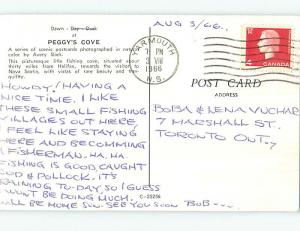 Dawn - Day - Dusk
at
PEGGY'S COVE
A series of scenic postcards photographed in natural
color by Avery Slack.
This picturesque little fishing cove, situated about
thirty miles from Halifax, rewards the visitor to
Nova Scotia, with vistas of rare beauty and tran-
quility.
AUG 3/66.
YARMOUTH
PM
3 VIII
1966
N.S.
4
CANADA
HOWDY, HAVING A
NICE TIME. I LIKE
THESE SMALL FISHING
VILLAGES OUT HERE,
I FEEL LIKE STAYING
HERE AND BECOMMING
A FISHERMAN. HA. HA.
FISHING IS GOOD, CAUGHT
COD & POLLOCK. IT'S
RAINING TO-DAY, SO I GUESS
WON'T BE DOING MUCH.
WILL BE HOME SUN. SEE YOU SOON BOB---
POST CARD
ADDRESS
BOBA & LENA VUCHAR
7 MARSHALL ST.
TORONTO ONT. 7
C-25256